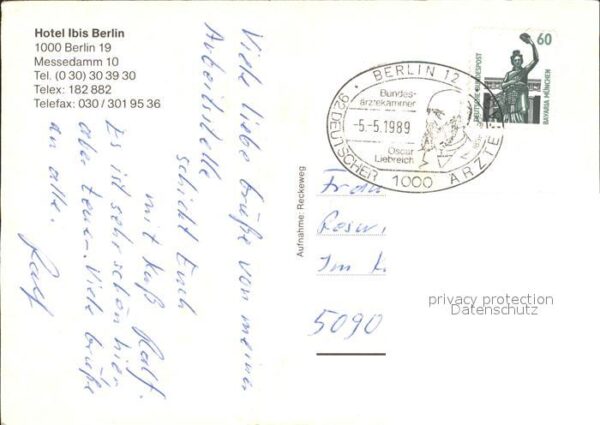 Hotel Ibis Berlin
1000 Berlin 19
Messedamm 10
Tel. (0 30) 30 39 30
Telex: 182 882
Telefax: 030 / 301 95 36
Viele liebe Grüße von meiner
Arbeitsstelle
schickt Euch
mit Kuß Ralf.
Es ist sehr schön hier
aber teuer. Viele Grüße
an alle. Ralf
Aufnahme: Reckeweg
BERLIN 12
92. DEUTSCHER ÄRZTE
Bundes-
ärztekammer
-5.-5.1989
Oscar
Liebreich
1000
60
DEUTSCHE BUNDESPOST
BAVARIA MÜNCHEN
Frau
Rosw.
Im
5090
privacy protection
Datenschutz